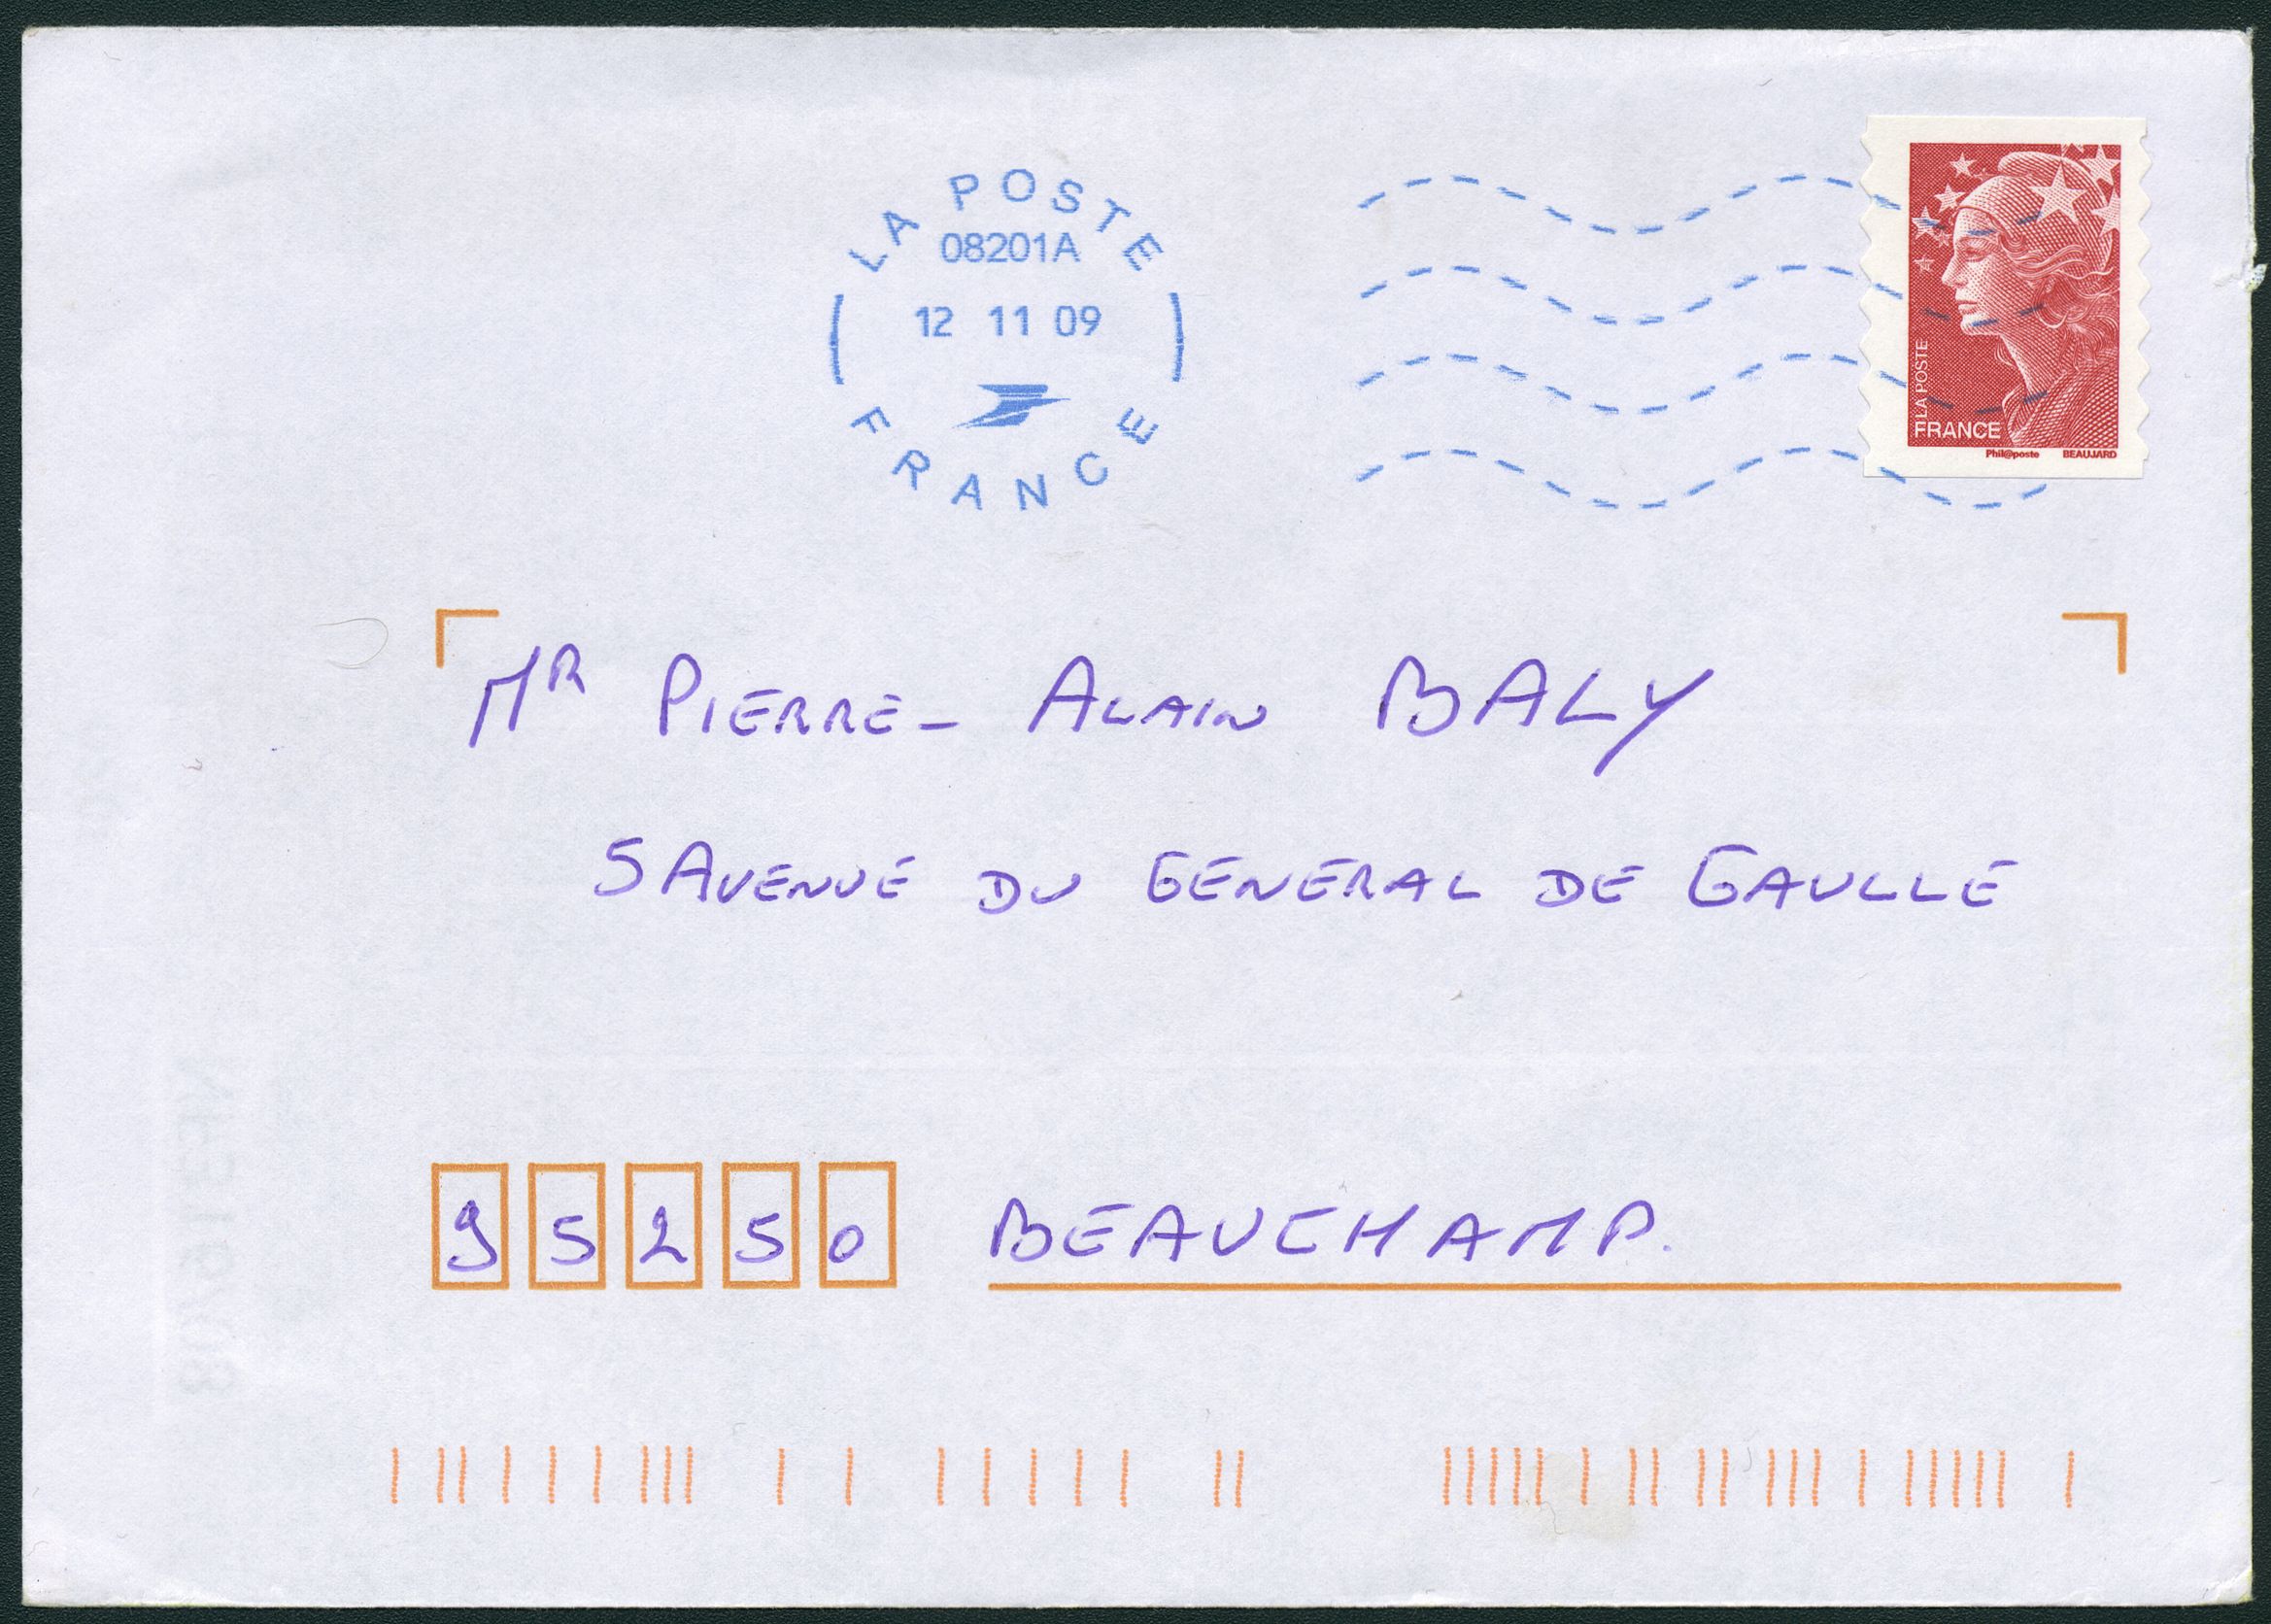 LA POSTE
08201A
12 11 09
FRANCE
LA POSTE
FRANCE
Phil@poste BEAUJARD
MR PIERRE- ALAIN BALY
5 AVENUE DU GENERAL DE GAULLE
95250 BEAUCHAMP.